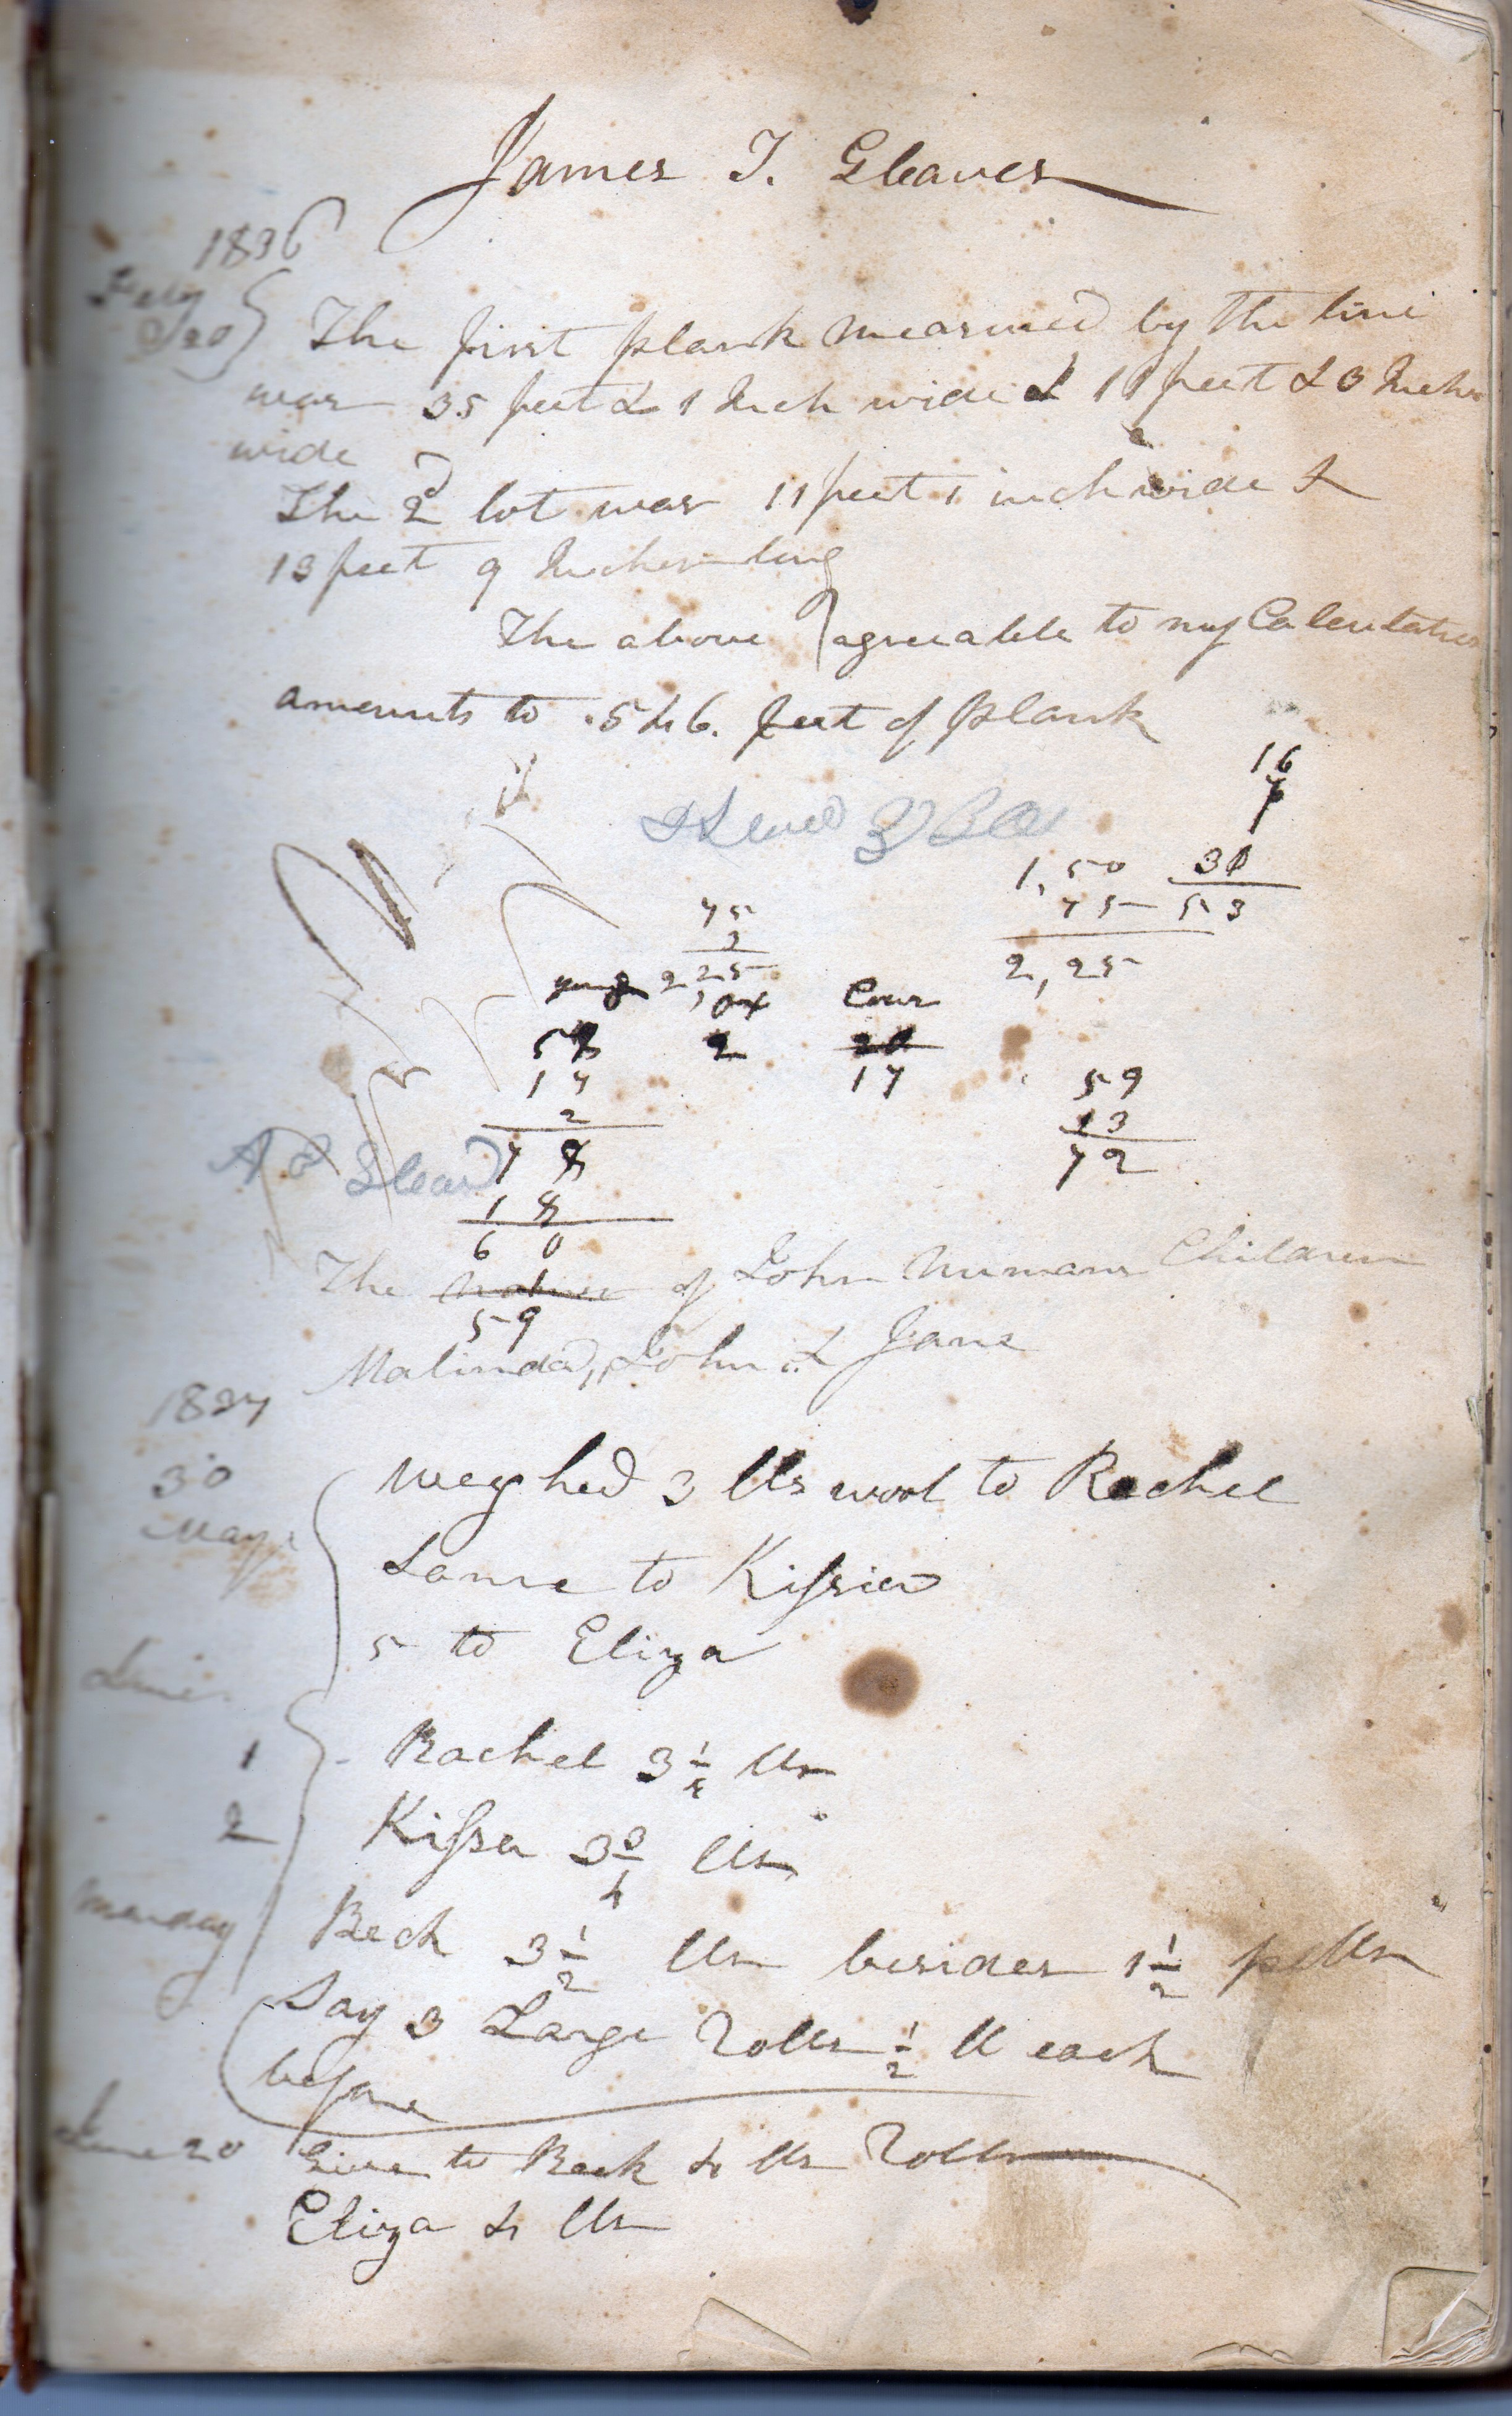 James T. Gleaves
1836
Feby
20
The first plank measured by the line
was 35 feet & 1 Inch wide & 11 feet & 3 Inches
wide
The 2d lot was 11 feet 1 inch wide &
13 feet 9 Inches long
The above agreeable to my Calculation
amounts to .546. feet of plank
16
7
1,50 30
75 53
2,25
75
3
225
young ox Cows
2 20
17 17
2
7
1 8
6 0
1
59
59
13
72
The of John Numans Children
Malinda, John & Jane
1837
30
May
weyhed 3 lbs wool to Rachel
Same to Kissiea
5 to Eliza
June
1 Rachel 3 1/2 lbs
2 Kissea 3 3/4 lbs
Monday Beck 3 1/2 lbs besides 1 1/2
Say 3 Large Rolls 1/2 lb each
before
June 20 Give to Beck 4 lbs Rolls
Eliza 4 lbs